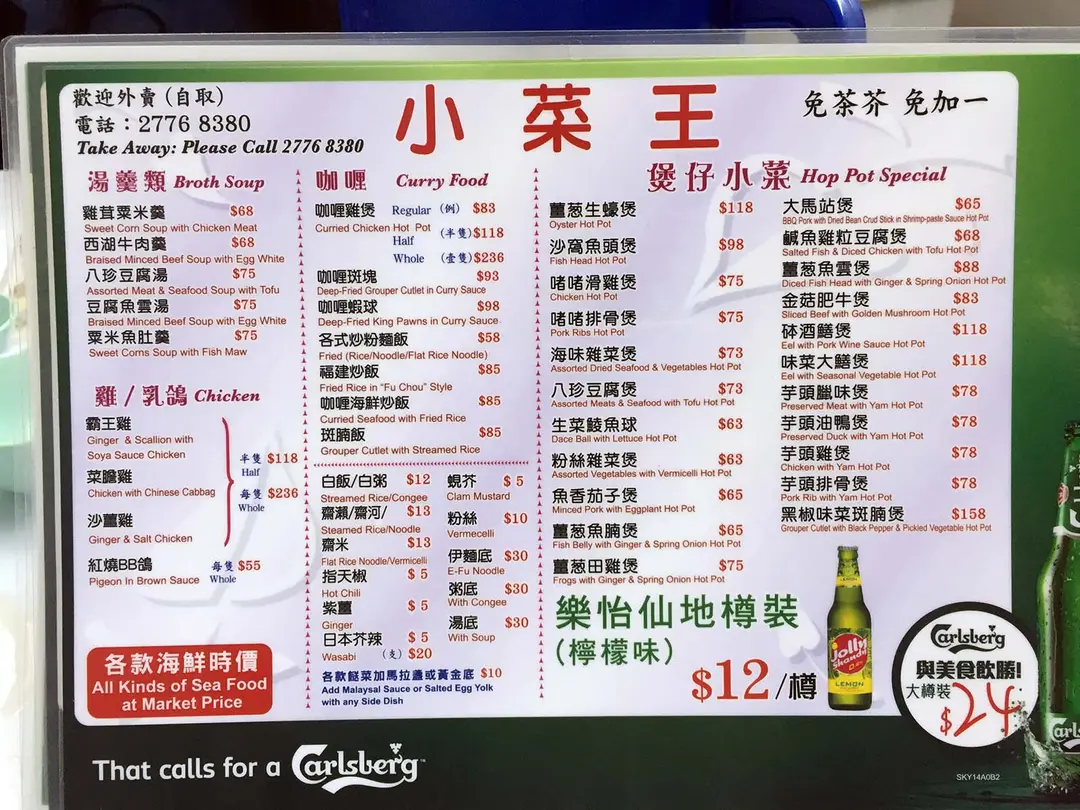 歡迎外賣(自取)
電話：2776 8380
Take Away: Please Call 2776 8380
小菜王
免茶芥 免加一
湯羹類 Broth Soup
雞茸粟米羹 $68
Sweet Corn Soup with Chicken Meat
西湖牛肉羹 $68
Braised Minced Beef Soup with Egg White
八珍豆腐湯 $75
Assorted Meat & Seafood Soup with Tofu
豆腐魚雲湯 $75
Braised Minced Beef Soup with Egg White
粟米魚肚羹 $75
Sweet Corns Soup with Fish Maw
雞/乳鴿 Chicken
霸王雞
Ginger & Scallion with
Soya Sauce Chicken
菜膽雞
Chicken with Chinese Cabbag
沙薑雞
Ginger & Salt Chicken
半隻 $118
Half
每隻 $236
Whole
紅燒BB鴿 每隻 $55
Pigeon In Brown Sauce Whole
各款海鮮時價
All Kinds of Sea Food
at Market Price
咖喱 Curry Food
咖喱雞煲 Regular (例) $83
Curried Chicken Hot Pot
Half (半隻) $118
Whole (壹隻) $236
咖喱斑塊 $93
Deep-Fried Grouper Cutlet in Curry Sauce
咖喱蝦球 $98
Deep-Fried King Pawns in Curry Sauce
各式炒粉麵飯 $58
Fried (Rice/Noodle/Flat Rice Noodle)
福建炒飯 $85
Fried Rice in "Fu Chou" Style
咖喱海鮮炒飯 $85
Curried Seafood with Fried Rice
斑腩飯 $85
Grouper Cutlet with Streamed Rice
白飯/白粥 $12
Streamed Rice/Congee
齋瀨/齋河/ $13
Steamed Rice/Noodle
齋米 $13
Flat Rice Noodle/Vermicelli
指天椒 $5
Hot Chili
紫薑 $5
Ginger
日本芥辣 $5
Wasabi (支) $20
蜆芥 $5
Clam Mustard
粉絲 $10
Vermecelli
伊麵底 $30
E-Fu Noodle
粥底 $30
With Congee
湯底 $30
With Soup
各款餸菜加馬拉盞或黃金底 $10
Add Malaysal Sauce or Salted Egg Yolk
with any Side Dish
煲仔小菜 Hop Pot Special
薑葱生蠔煲 $118
Oyster Hot Pot
沙窩魚頭煲 $98
Fish Head Hot Pot
啫啫滑雞煲 $75
Chicken Hot Pot
啫啫排骨煲 $75
Pork Ribs Hot Pot
海味雜菜煲 $73
Assorted Dried Seafood & Vegetables Hot Pot
八珍豆腐煲 $73
Assorted Meats & Seafood with Tofu Hot Pot
生菜鯪魚球 $63
Dace Ball with Lettuce Hot Pot
粉絲雜菜煲 $63
Assorted Vegetables with Vermicelli Hot Pot
魚香茄子煲 $65
Minced Pork with Eggplant Hot Pot
薑葱魚腩煲 $65
Fish Belly with Ginger & Spring Onion Hot Pot
薑葱田雞煲 $75
Frogs with Ginger & Spring Onion Hot Pot
大馬站煲 $65
BBQ Pork with Dried Bean Crud Stick in Shrimp-paste Sauce Hot Pot
鹹魚雞粒豆腐煲 $68
Salted Fish & Diced Chicken with Tofu Hot Pot
薑葱魚雲煲 $88
Diced Fish Head with Ginger & Spring Onion Hot Pot
金菇肥牛煲 $83
Sliced Beef with Golden Mushroom Hot Pot
砵酒鱔煲 $118
Eel with Pork Wine Sauce Hot Pot
味菜大鱔煲 $118
Eel with Seasonal Vegetable Hot Pot
芋頭臘味煲 $78
Preserved Meat with Yam Hot Pot
芋頭油鴨煲 $78
Preserved Duck with Yam Hot Pot
芋頭雞煲 $78
Chicken with Yam Hot Pot
芋頭排骨煲 $78
Pork Rib with Yam Hot Pot
黑椒味菜斑腩煲 $158
Grouper Cutlet with Black Pepper & Pickled Vegetable Hot Pot
樂怡仙地樽裝
(檸檬味)
$12/樽
LEMON
Jolly
Shandy
LEMON
Carlsberg
與美食飲勝!
大樽裝
$24
Carl
That calls for a Carlsberg
SKY14A0B2